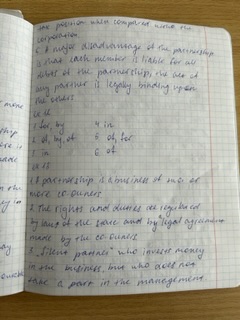 tax position when compared with the
corporation
6. A major disadvantage of the partnership
is that each member is liable for all
debts of the partnership; the act of
any partner is legally binding upon
the others
1 for, by 4 in
2 of, by, of 5 of, for
3 in 6 of
1 A partnership is a business of two or
more co-owners
2 The rights and duties are regulated
by laws of the state and by legal agreement
made by the co-owners
3 „Silent partner" who invests money
in the business, but who does not
take a part in the management.